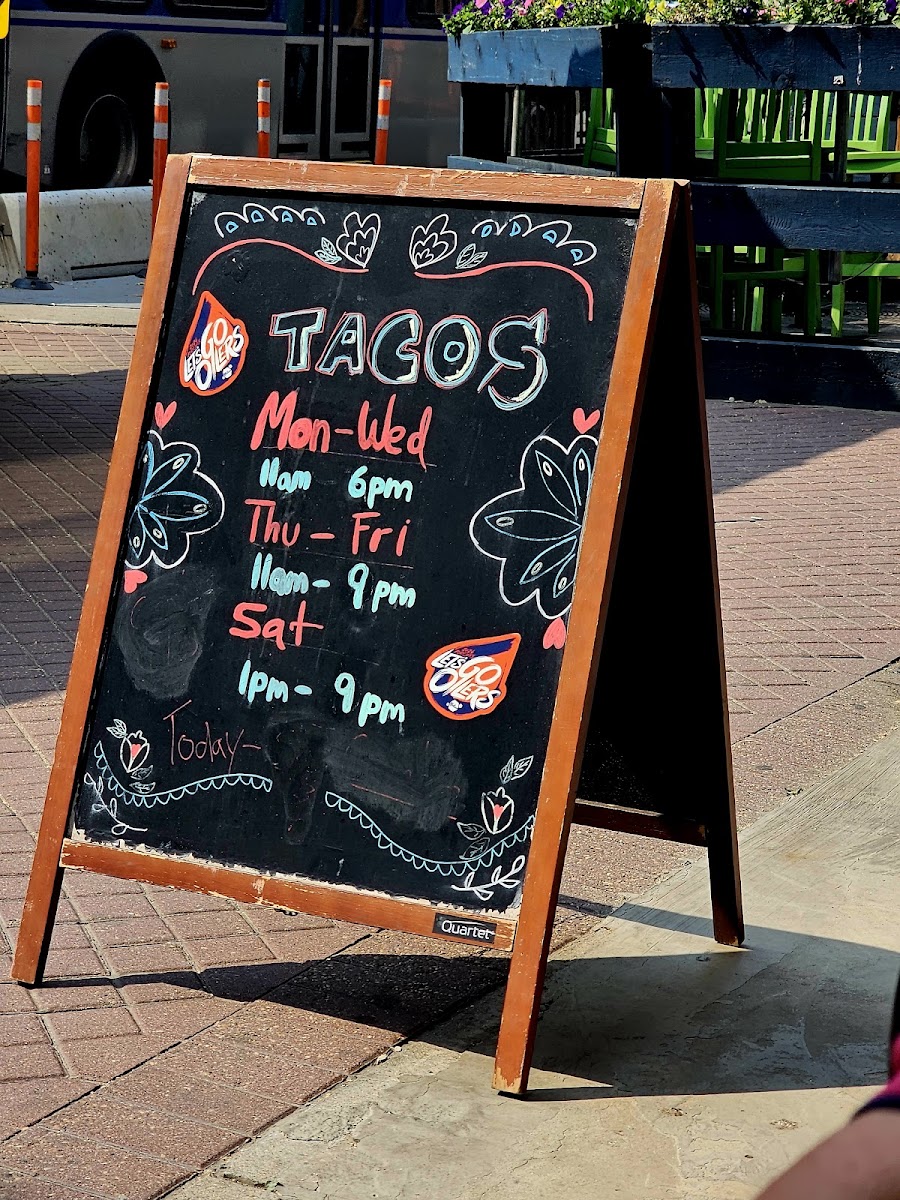 TACOS
LET'S GO
OILERS
Mon-Wed
11am 6pm
Thu - Fri
11am - 9pm
Sat
1pm - 9pm
LET'S GO
OILERS
Today -
Quartet